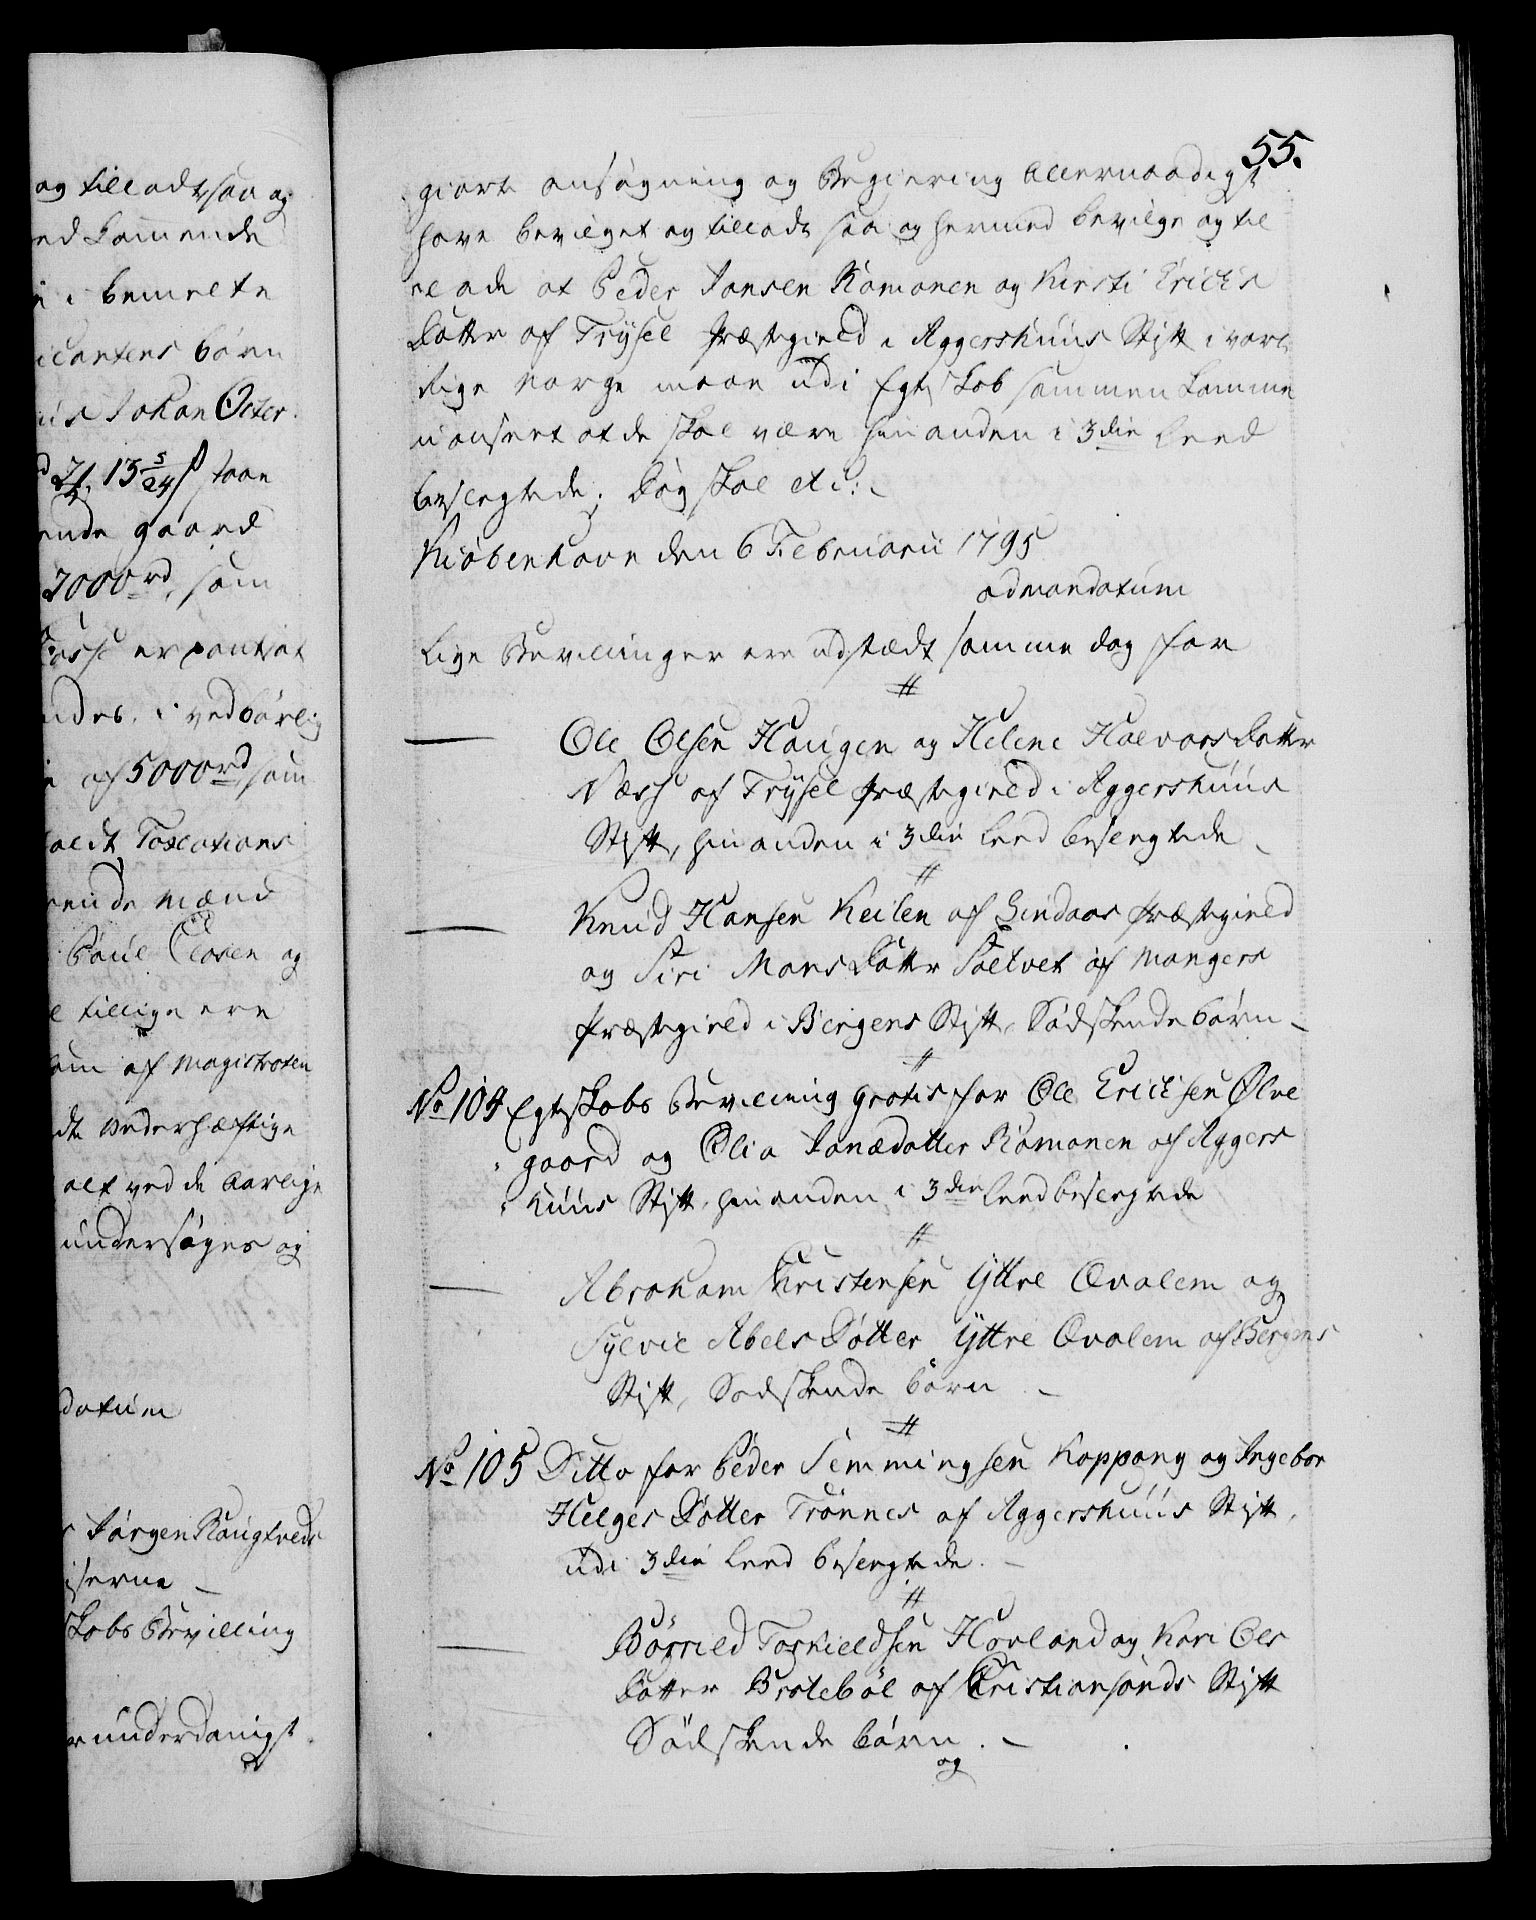 og tilladt, saa og
ed kommende
i bemelte
icantens børn
Johan Peter
13 5/24 ß saae
ende gaard
2000 rd, som
er pantsat
ndes, i vedbørlig
af 5000 rd som
Taxations
ende mænd
Poul Clasen og
tillige ere
om af Magistraten
dte Vederhæftige
alt ved de Aarlige
undersøges og
datum
Jørgen
iserne –
skobs Bevilling
underdanigst
55.
giorte ansøgning og Begiering Allernaadigst
have bevilget og tilladt saa og hermed bevilge og til
lade at Peder Jonsen Römonen og Kirsti Erichs
Datter af Trysel Præstegield i Aggershuus Stift i vort
Rige Norge maae udi Egteskab sammen komme
uanseet at de skal være hinanden i 3die Leed
beslegtede; Dog skal etc: –
Kiøbenhavn den 6 Februarii 1795
ad mandatum
Lige Bevillinger ere udstædt samme dag for
#
— Ole Olsen Haugen og Helene Halvors Datter
Næss af Trysel Præstegield i Aggershuus
Stift, hinanden i 3die Leed beslegtede –
#
— Knud Hansen Keilen af Lindaas Præstegield
og Siri Mons Datter Soltvet af Mangers
Præstegield i Bergens Stift, Södskende börn –
#
No 104 Egteskabs Bevilling gratis for Ole Erichsen Ølve
gaard og Olia Jonædatter Römonen af Aggers
huus Stift, hinanden i 3die Leed beslegtede
#
— Abraham Christensen Yttre Qvalem og
Sylvie Abels Dötter Yttre Qvalem af Bergens
Stift, Sødskende börn –
#
No 105 Ditto for Peder Semmingsen Koppang og Ingebor
Helges Dötter Trönnes af Aggershuus Stift,
udi 3die Leed beslegtede. –
#
— Börrild Torkieldsen Hovland og Kari Ols
Datter Broteböl af Christiansands Stift
Södskende börn. –
og